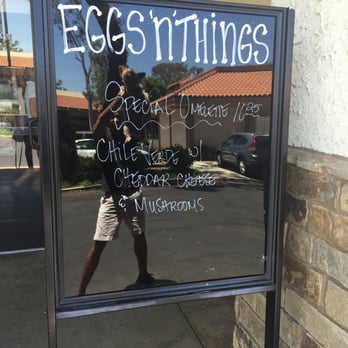 EGGS 'N' THINGS
SPECIAL OMELETTE
CHILE VERDE W/
CHEDDAR CHEESE
& MUSHROOMS